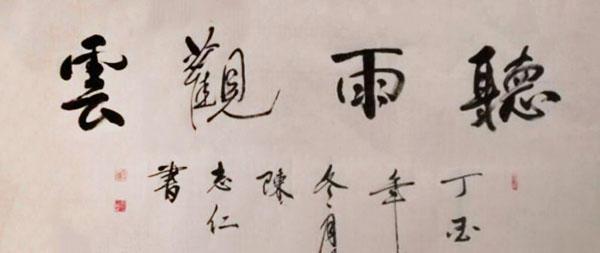 聽雨觀雲
丁酉年冬月陳志仁書